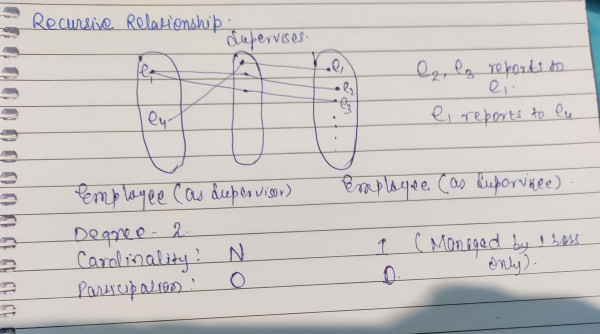 Recursive Relationship.
Supervises.
e1 e1
e2
e3
e4
e2, e3 reports to
e1.
e1 reports to e4
Employee (as Supervisor) Employee (as Supervisee).
Degree - 2
Cardinality: N 1 (Managed by 1 boss
only).
Participation: O O